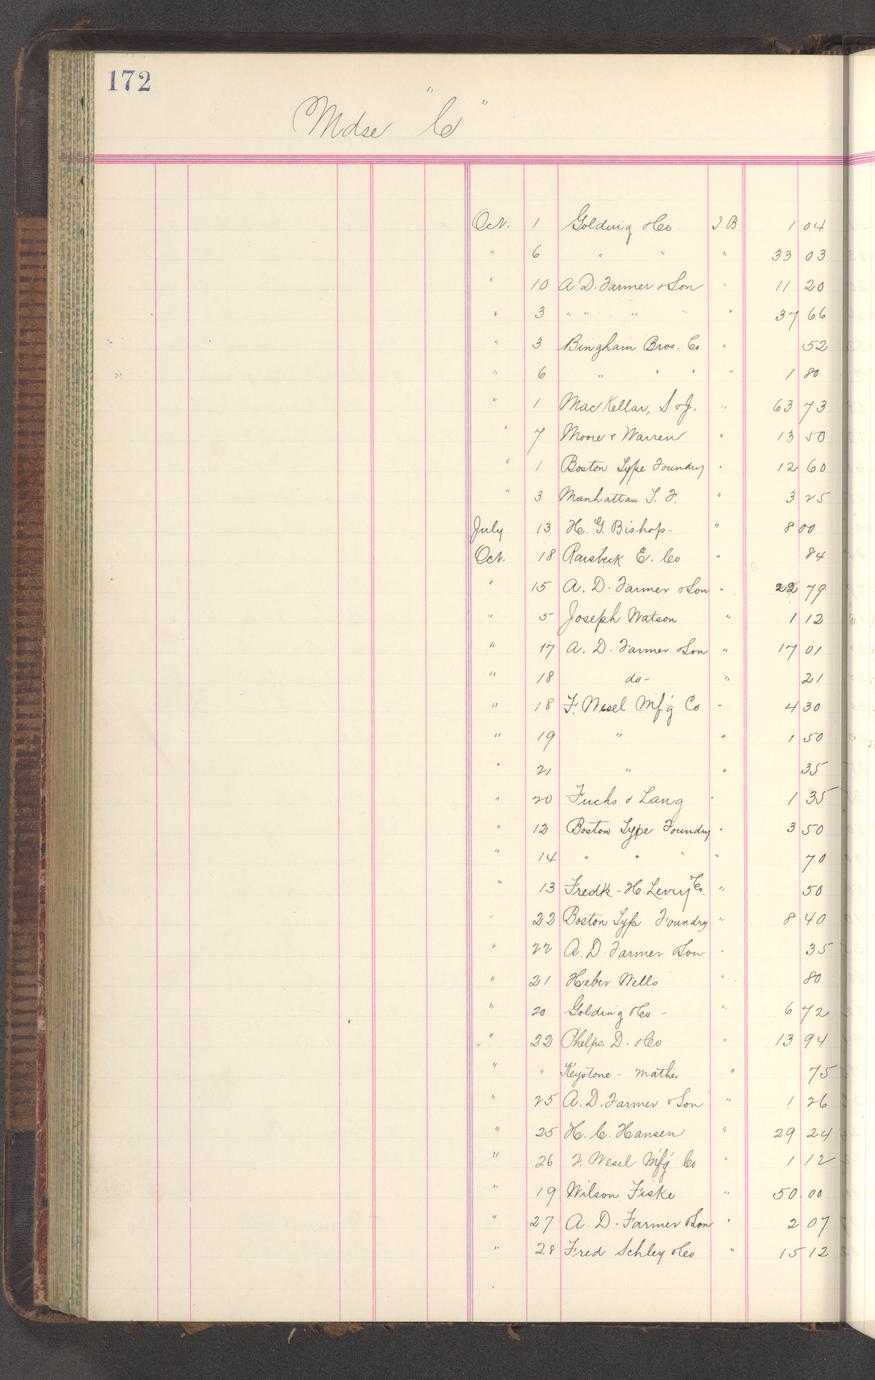 172
Mdse "C"
Oct. 1 Golding & Co J.B. 1 04
" 6 " " " 33 03
" 10 A. D. Farmer & Son " 11 20
" 3 " " " " " 37 66
" 3 Bingham Bros. Co " 52
" 6 " " " " 1 80
" 1 MacKellar, S & J. " 63 73
" 7 Moore & Warren " 13 50
" 1 Boston Type Foundry " 12 60
" 3 Manhattan T. F. " 3 25
July 13 H. G. Bishop - " 8 00
Oct. 18 Raisbeck E. Co " 84
" 15 A. D. Farmer & Son " 22 79
" 5 Joseph Watson " 1 12
" 17 A. D. Farmer & Son " 17 01
" 18 do - " 21
" 18 F. Wesel Mf'g Co - 4 30
" 19 " " 1 50
" 21 " " 35
" 20 Fuchs & Lang " 1 35
" 12 Boston Type Foundry " 3 50
" 14 " " " " 70
" 13 Fredk - H. Levey Co. " 50
" 22 Boston Type Foundry " 8 40
" 22 A. D. Farmer & Son " 35
" 21 Heber Wells " 80
" 20 Golding & Co - " 6 72
" 22 Phelps. D. & Co " 13 94
" " Keystone - Mather " 75
" 25 A. D. Farmer & Son " 1 26
" 25 H. C. Hansen " 29 24
" 26 F. Wesel Mf'g Co " 1 12
" 19 Wilson Fiske " 50 00
" 27 A. D. Farmer & Son " 2 07
" 28 Fred Schley & Co " 15 12